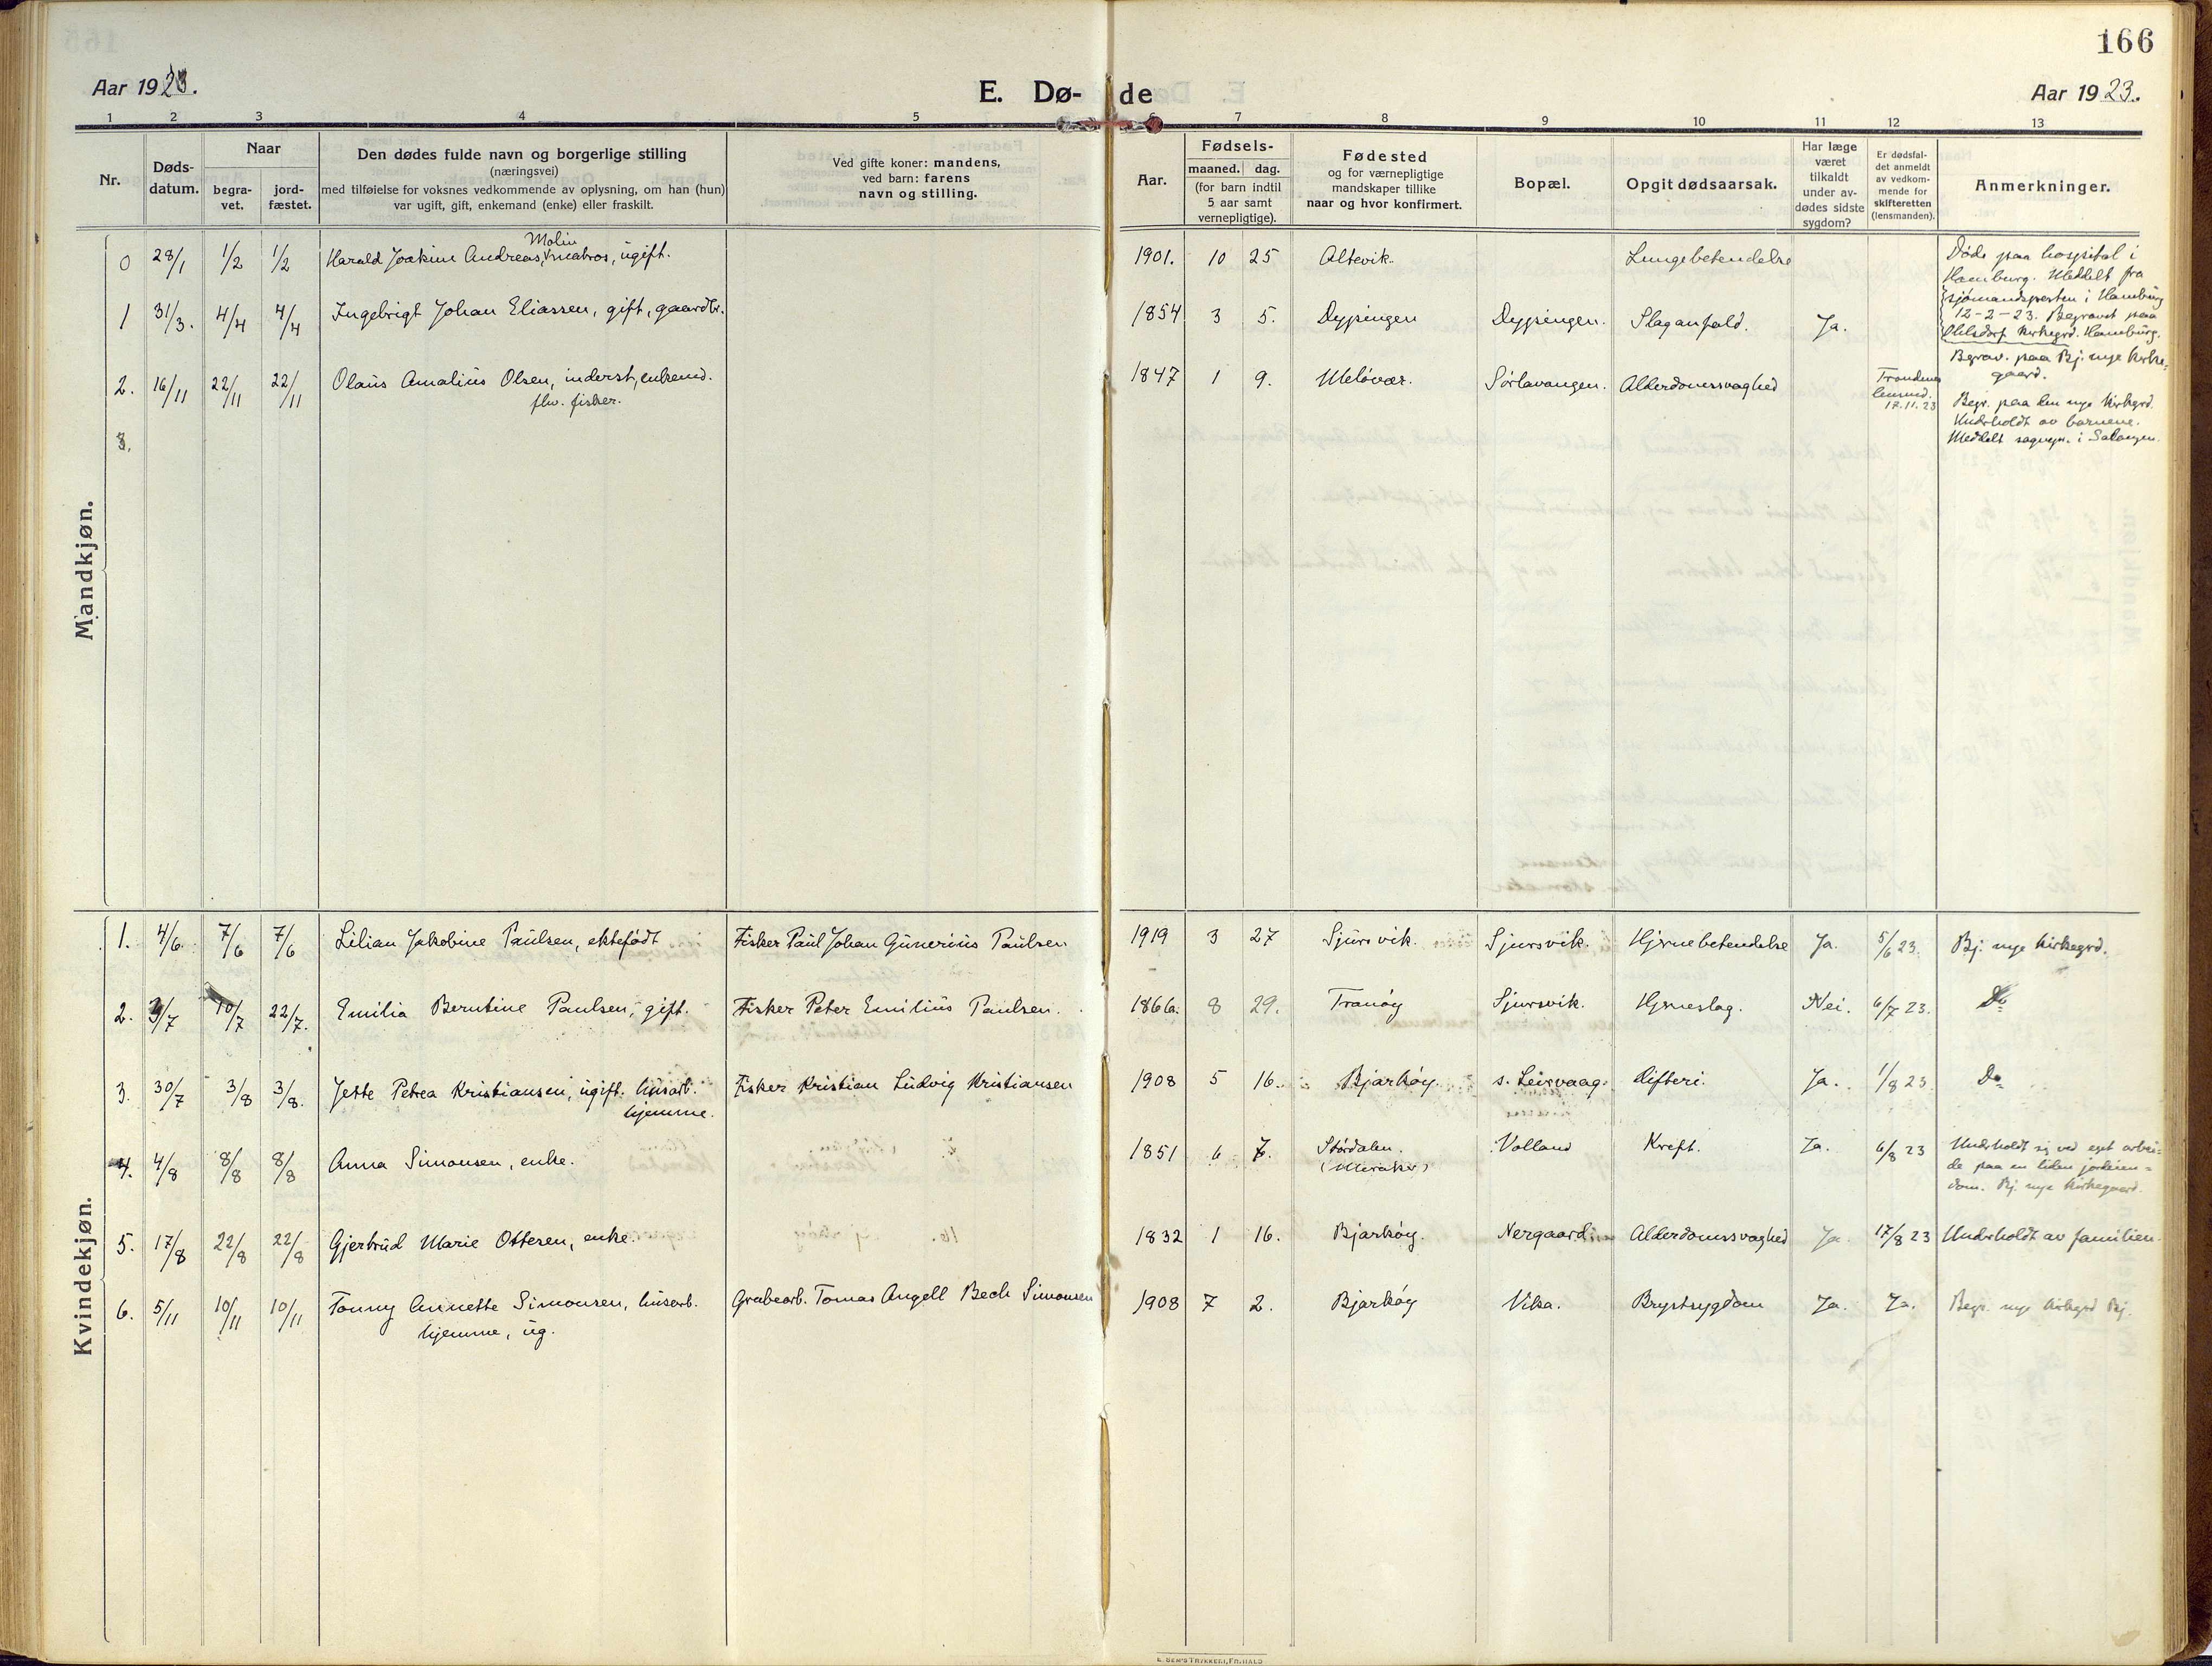 166
Aar 1923.
E. Dø- de
Aar 1923.
1 2 3 4 5 6 7 8 9 10 11 12 13
Nr.
Døds-
datum.
Naar
begra-
vet.
jord-
fæstet.
Den dødes fulde navn og borgerlige stilling
(næringsvei)
med tilføielse for voksnes vedkommende av oplysning, om han (hun)
var ugift, gift, enkemand (enke) eller fraskilt.
Ved gifte koner: mandens,
ved barn: farens
navn og stilling.
Aar.
Fødsels-
maaned. dag.
(for barn indtil
5 aar samt
vernepligtige).
Fødested
og for værnepligtige
mandskaper tillike
naar og hvor konfirmert.
Bopæl.
Opgit dødsaarsak.
Har læge
været
tilkaldt
under av-
dødes sidste
sygdom?
Er dødsfal-
det anmeldt
av vedkom-
mende for
skifteretten
(lensmanden).
Anmerkninger.
Mandkjøn.
0 28/1 1/2 1/2 Harald Joakim Andreas Molin, ugift. 1901. 10 25 Altevik. Lungebetendelse
Døde paa hospital i
Hamburg. Meddelt fra
sjømandspresten i Hamburg
12-2-23. Begravet paa
Ohlsdorf kirkegrd. Hamburg.
1 31/3. 4/4 4/4 Ingebrigt Johan Eliassen, gift, gaardbr. 1854 3 5. Dypingen Dypingen. Slaganfald. Ja.
Begrav. paa Bj. nye kirke-
gaard.
2. 16/11 22/11 22/11 Olaus Amalius Olsen, inderst, enkemd. 1847 1 9. Meløvær. Sørlavangen. Alderdomssvaghed
flv. fisker.
Trondenes
lensmd.
17.11.23
Begr. paa den nye kirkgrd.
Underholdt av barnene.
Meddelt sognepr. i Salangen.
3.
Kvindekjøn.
1. 4/6 7/6 7/6 Lilian Jakobine Paulsen, ektefødt Fisker Paul Johan Gunerius Paulsen 1919 3 27 Sjursvik. Sjursvik. Hjernebetendelse Ja. 5/6 23. Bj. nye kirkegrd.
2. 3/7 10/7 22/7. Emilia Berntine Paulsen, gift. Fisker Peter Emilius Paulsen. 1866. 8 29. Tranøy Sjursvik. Hjerneslag. Nei. 6/7 23. Do
3. 30/7 3/8 3/8. Jette Petrea Kristiansen, ugift. husarb. Fisker Kristian Ludvig Kristiansen 1908 5 16. Bjarkøy. s. Leirvaag. Difteri. Ja. 1/8 23 Do
hjemme.
4. 4/8 8/8 8/8 Anna Simonsen, enke. 1851 6 7. Størdalen. Volland Kreft. Ja. 6/8 23
(Meraker)
Underholdt sig ved eget arbei-
de paa en liden jordeien-
dom. Bj. nye kirkegaard.
5. 17/8 22/8 22/8 Gjertrud Marie Ottesen, enke. 1832 1 16. Bjarkøy. Nergaard. Alderdomssvaghed Ja. 17/8 23 Underholdt av familien.
6. 5/11 10/11 10/11 Tonny Annette Simonsen, husarb. Grubearb. Tomas Angell Bech Simonsen 1908 7 2. Bjarkøy Vika. Brystsygdom Ja. Ja. Begr. nye kirkegrd Bj.
hjemme, ug.